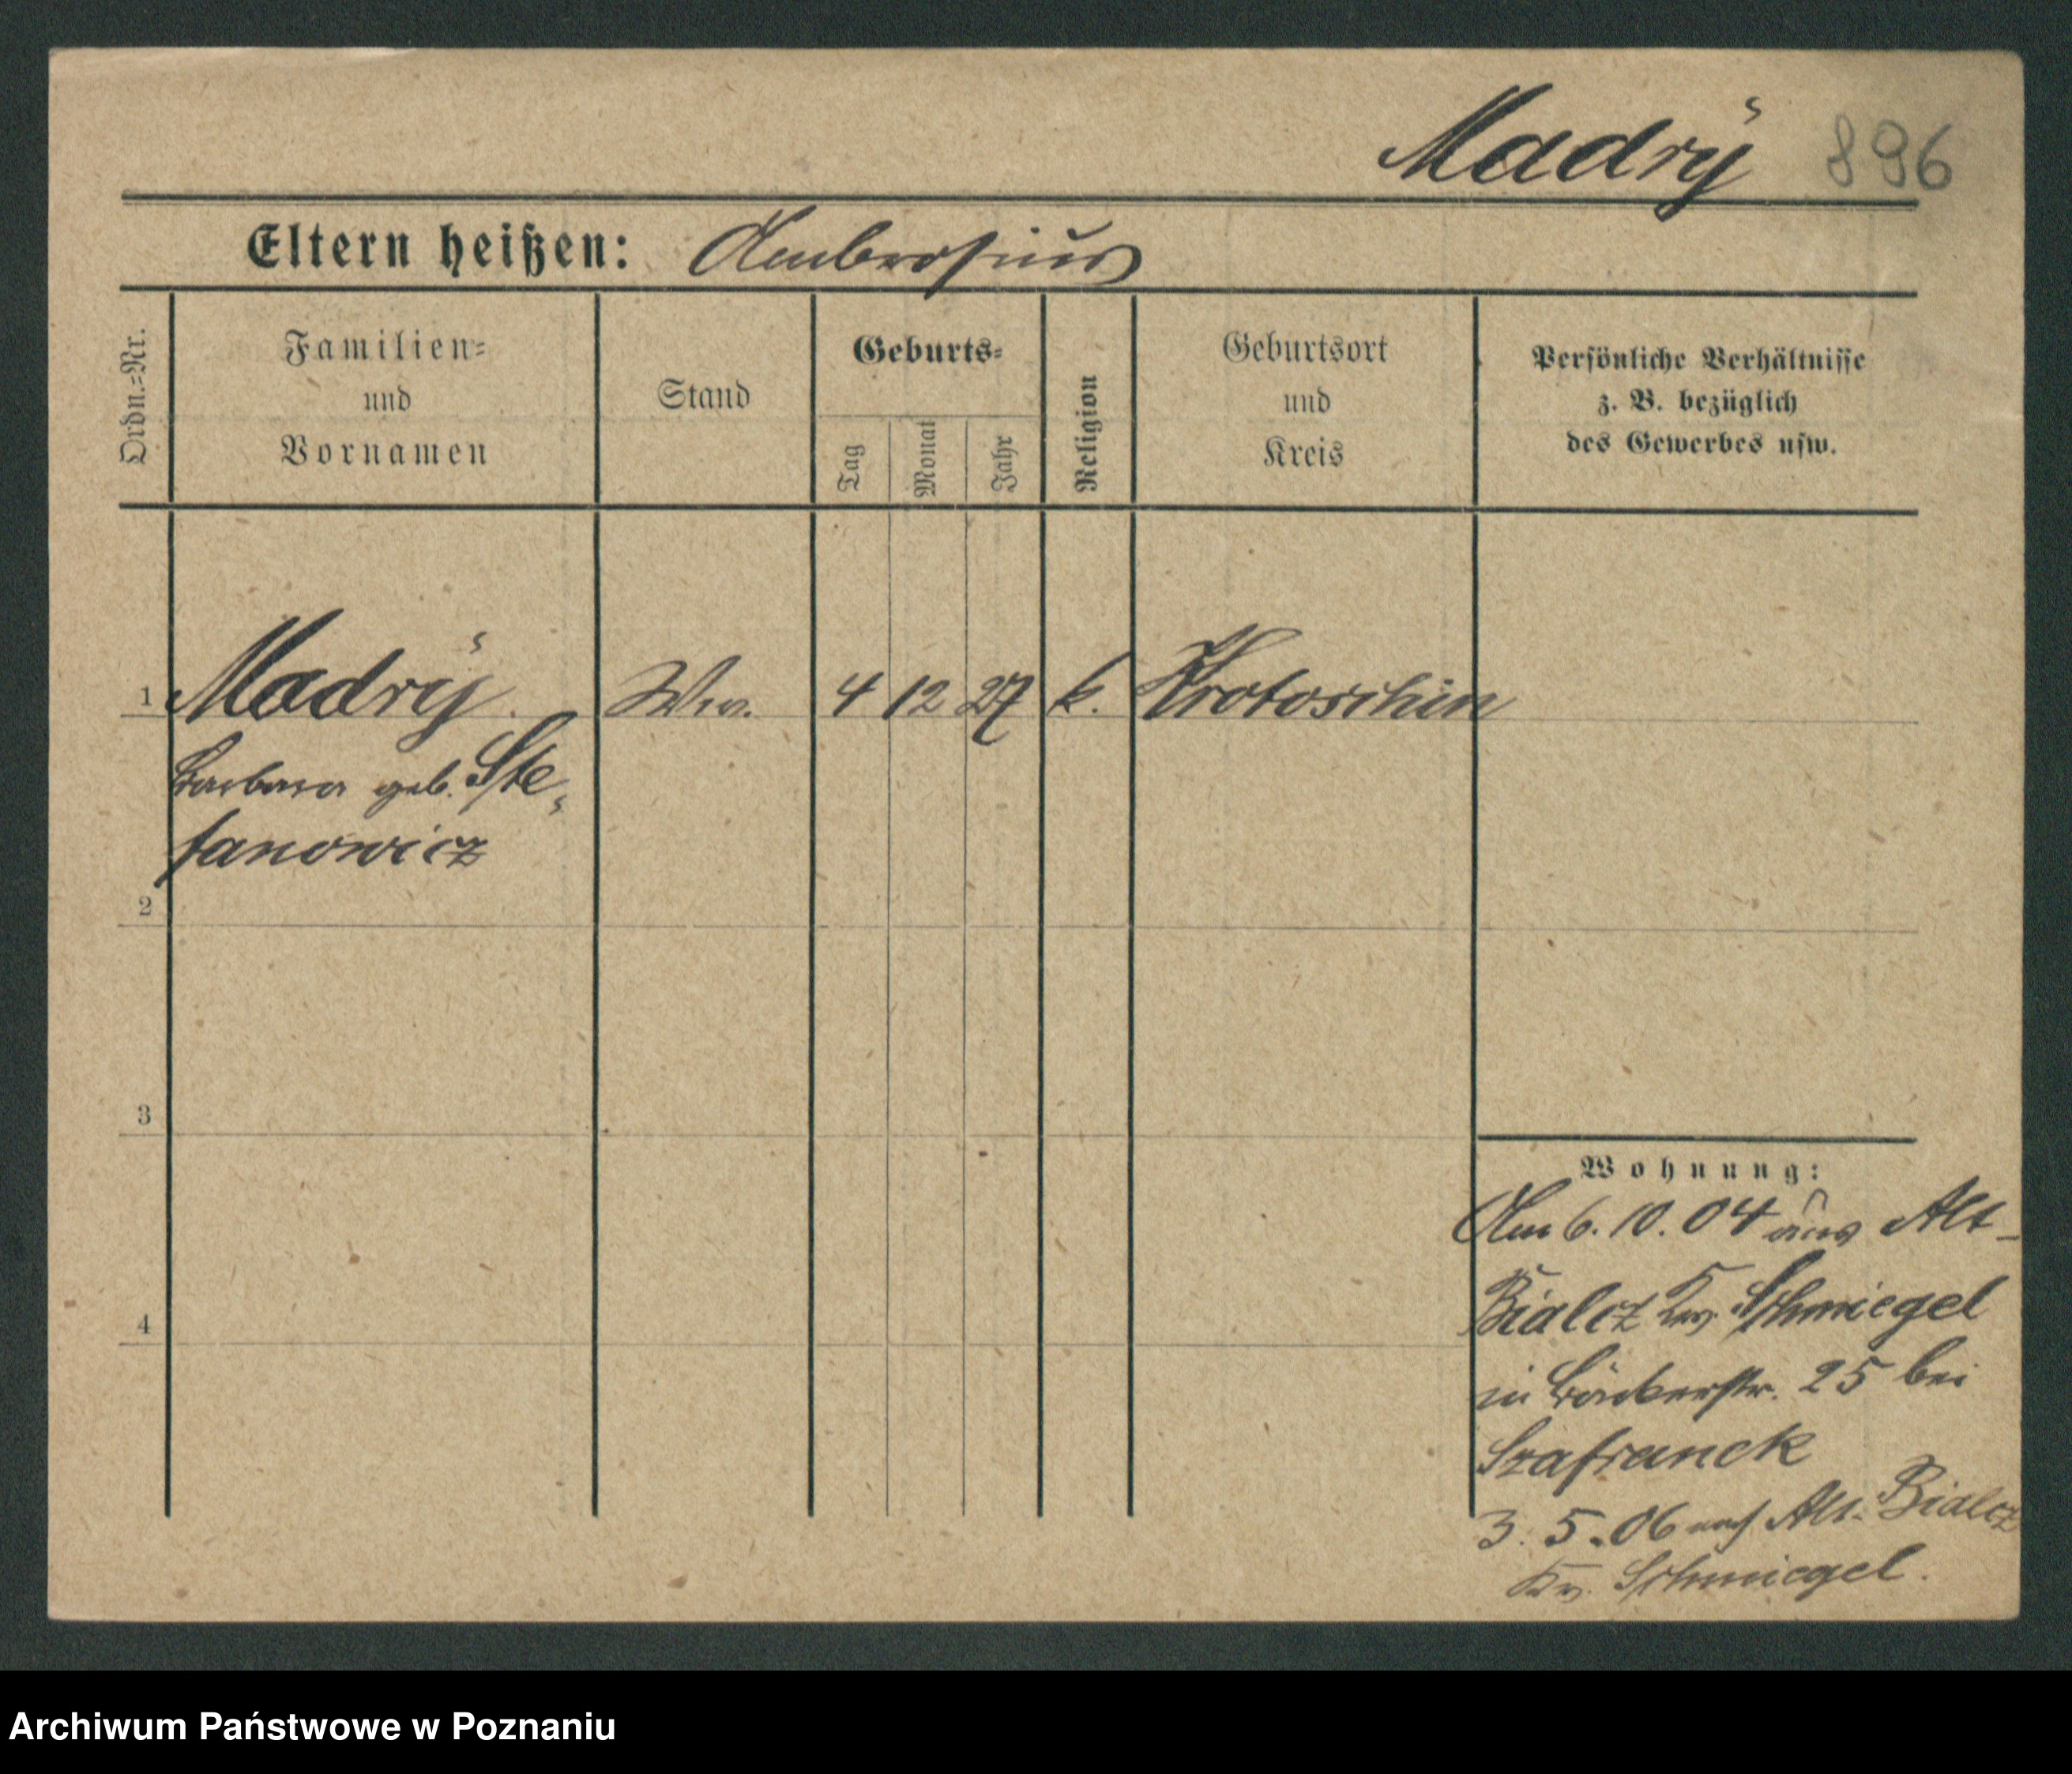 Madrÿ 896
Eltern heißen: Ambrosius
Ordn.=Nr.
Familien=
und
Vornamen
Stand
Geburts=
Tag
Monat
Jahr
Religion
Geburtsort
und
Kreis
Persönliche Verhältnisse
z. B. bezüglich
des Gewerbes usw.
1 Madrÿ Ww. 4 12 27 k. Krotoschin
Barbara geb. Ste-
fanowicz
2
3
4
Wohnung:
Am 6. 10. 04 aus Alt-
Bialcz Krs. Schmiegel
in Bäckerstr. 25 bei
Szafranek
3. 5. 06 nach Alt-Bialcz
Kr. Schmiegel.
Archiwum Państwowe w Poznaniu